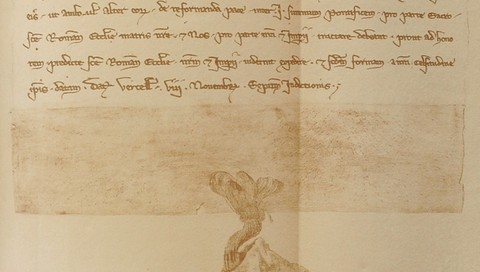 eis . ut ambo ul alter eorum . de reformanda pace inter . J . summum Pontificem . pro parte Sacro
sce Roman Ecclie matris nre . ⁊ Nos . pro parte nra ⁊ Impii tractare debeant . prout ad hono
rem predicte sce Roman Ecclie . nrm ⁊ Impii viderint expedire . ⁊ scdm formam a nra celsitudine
ipis . datam . Dat Vercell . viij . Novembr . Indictionis .